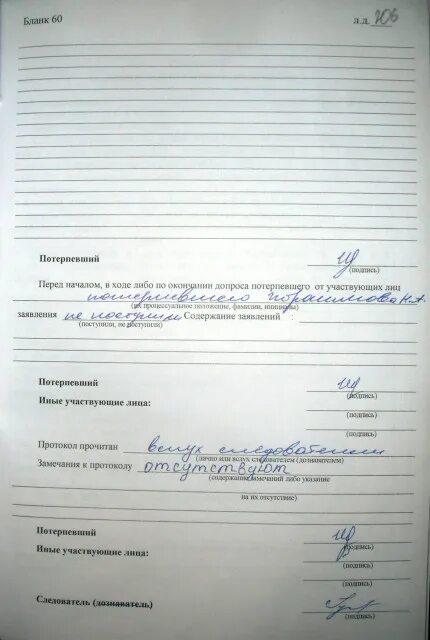 Бланк 60 л.д. 106
Потерпевший
(подпись)
Перед началом, в ходе либо по окончании допроса потерпевшего от участвующих лиц
потерпевшего
(их процессуальное положение, фамилии, инициалы)
заявления не поступили Содержание заявлений :
(поступили, не поступили)
Потерпевший
(подпись)
Иные участвующие лица:
(подпись)
(подпись)
Протокол прочитан вслух следователем
(лично или вслух следователем (дознавателем)
Замечания к протоколу отсутствуют
(содержание замечаний либо указание
на их отсутствие)
Потерпевший
(подпись)
Иные участвующие лица:
(подпись)
(подпись)
Следователь (дознаватель)
(подпись)